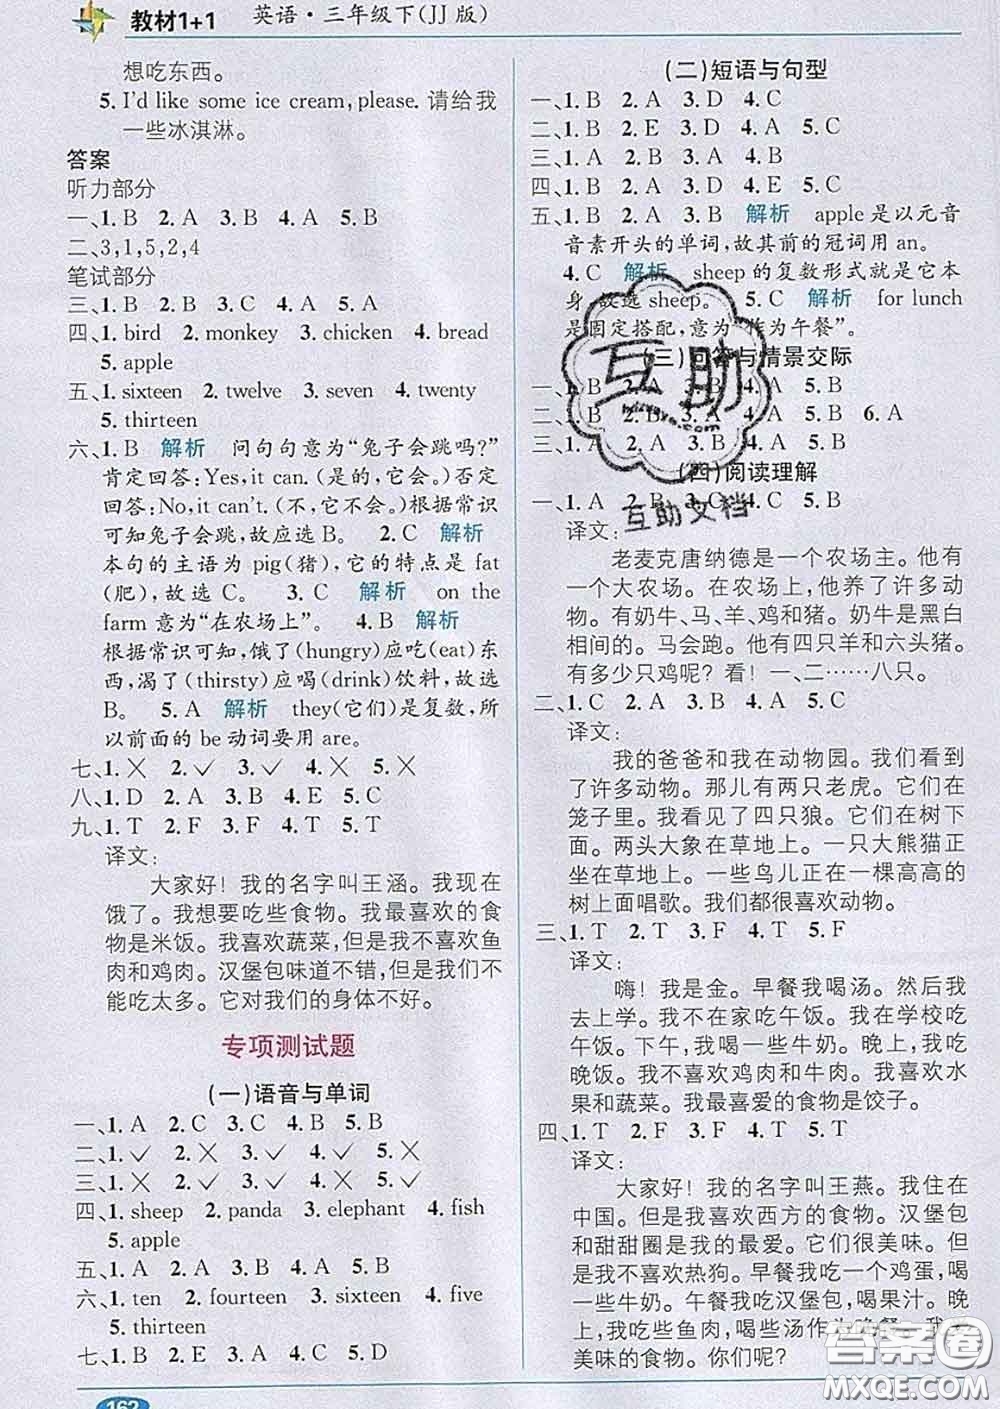 教材1+1 英语·三年级下(JJ版)
想吃东西。
5. I'd like some ice cream, please. 请给我
一些冰淇淋。
答案
听力部分
一、1. B 2. A 3. B 4. A 5. B
二、3,1,5,2,4
笔试部分
三、1. B 2. B 3. C 4. A 5. A
四、1. bird 2. monkey 3. chicken 4. bread
5. apple
五、1. sixteen 2. twelve 3. seven 4. twenty
5. thirteen
六、1. B 解析 问句句意为“兔子会跳吗?”
肯定回答:Yes,it can. (是的,它会。)否定
回答:No,it can't. (不,它不会。)根据常识
可知兔子会跳,故应选B。 2. C 解析
本句的主语为pig(猪),它的特点是fat
(肥),故选C。 3. C 解析 on the
farm意为“在农场上”。 4. B 解析
根据常识可知,饿了(hungry)应吃(eat)东
西,渴了(thirsty)应喝(drink)饮料,故选
B。 5. A 解析 they(它们)是复数,所
以前面的be动词要用are。
七、1. × 2. ✓ 3. ✓ 4. × 5. ×
八、1. D 2. A 3. B 4. E 5. C
九、1. T 2. F 3. F 4. T 5. T
译文:
大家好!我的名字叫王涵。我现在
饿了。我想要吃些食物。我最喜欢的食
物是米饭。我喜欢蔬菜,但是我不喜欢鱼
肉和鸡肉。汉堡包味道不错,但是我们不
能吃太多。它对我们的身体不好。
专项测试题
(一)语音与单词
一、1. A 2. C 3. C 4. B 5. B
二、1. ✓ 2. × 3. × 4. ✓ 5. ✓
三、1. × 2. ✓ 3. × 4. ✓ 5. ✓
四、1. sheep 2. panda 3. elephant 4. fish
5. apple
五、1. A 2. A 3. B 4. A 5. A
六、1. ten 2. fourteen 3. sixteen 4. five
5. thirteen
七、1. B 2. E 3. A 4. C 5. D
162
(二)短语与句型
一、1. B 2. A 3. D 4. C
二、1. B 2. E 3. D 4. A 5. C
三、1. A 2. B 3. A 4. B 5. B
四、1. B 2. A 3. D 4. E 5. C
五、1. B 2. A 3. B 解析 apple是以元音
音素开头的单词,故其前的冠词用an。
4. C 解析 sheep的复数形式就是它本
身,故选sheep。 5. C 解析 for lunch
是固定搭配,意为“作为午餐”。
(三)问答与情景交际
一、1. B 2. A 3. A 4. A 5. B
二、1. B 2. B 3. A 4. B 5. B 6. A
三、1. A 2. A 3. B 4. A 5. B
(四)阅读理解
一、1. A 2. B 3. C 4. C 5. B
译文:
老麦克唐纳德是一个农场主。他有
一个大农场。在农场上,他养了许多动
物。有奶牛、马、羊、鸡和猪。奶牛是黑白
相间的。马会跑。他有四只羊和六头猪。
有多少只鸡呢?看!一、二……八只。
二、1. C 2. A 3. A 4. B 5. C
译文:
我的爸爸和我在动物园。我们看到
了许多动物。那儿有两只老虎。它们在
笼子里。我看见了四只狼。它们在树下
面。两头大象在草地上。一只大熊猫正
坐在草地上。一些鸟儿正在一棵高高的
树上面唱歌。我们都很喜欢动物。
三、1. T 2. T 3. F 4. T 5. F
译文:
嗨!我是金。早餐我喝汤。然后我
去上学。我不在家吃午饭。我在学校吃
午饭。下午,我喝一些牛奶。晚上,我吃
晚饭。我不喜欢鸡肉和牛肉。我喜欢水
果和蔬菜。我最喜爱的食物是饺子。
四、1. T 2. F 3. F 4. T 5. T
译文:
大家好!我的名字叫王燕。我住在
中国。但是我喜欢西方的食物。汉堡包
和甜甜圈是我的最爱。它们很美味。但是
我不喜欢热狗。早餐我吃一个鸡蛋,喝
一些牛奶。午餐我吃汉堡包,喝果汁。晚
上,我吃些鱼肉,喝些汤作为晚餐。我
美味的食物。你们呢?
互助
互助文档
答案圈
MXQE.COM